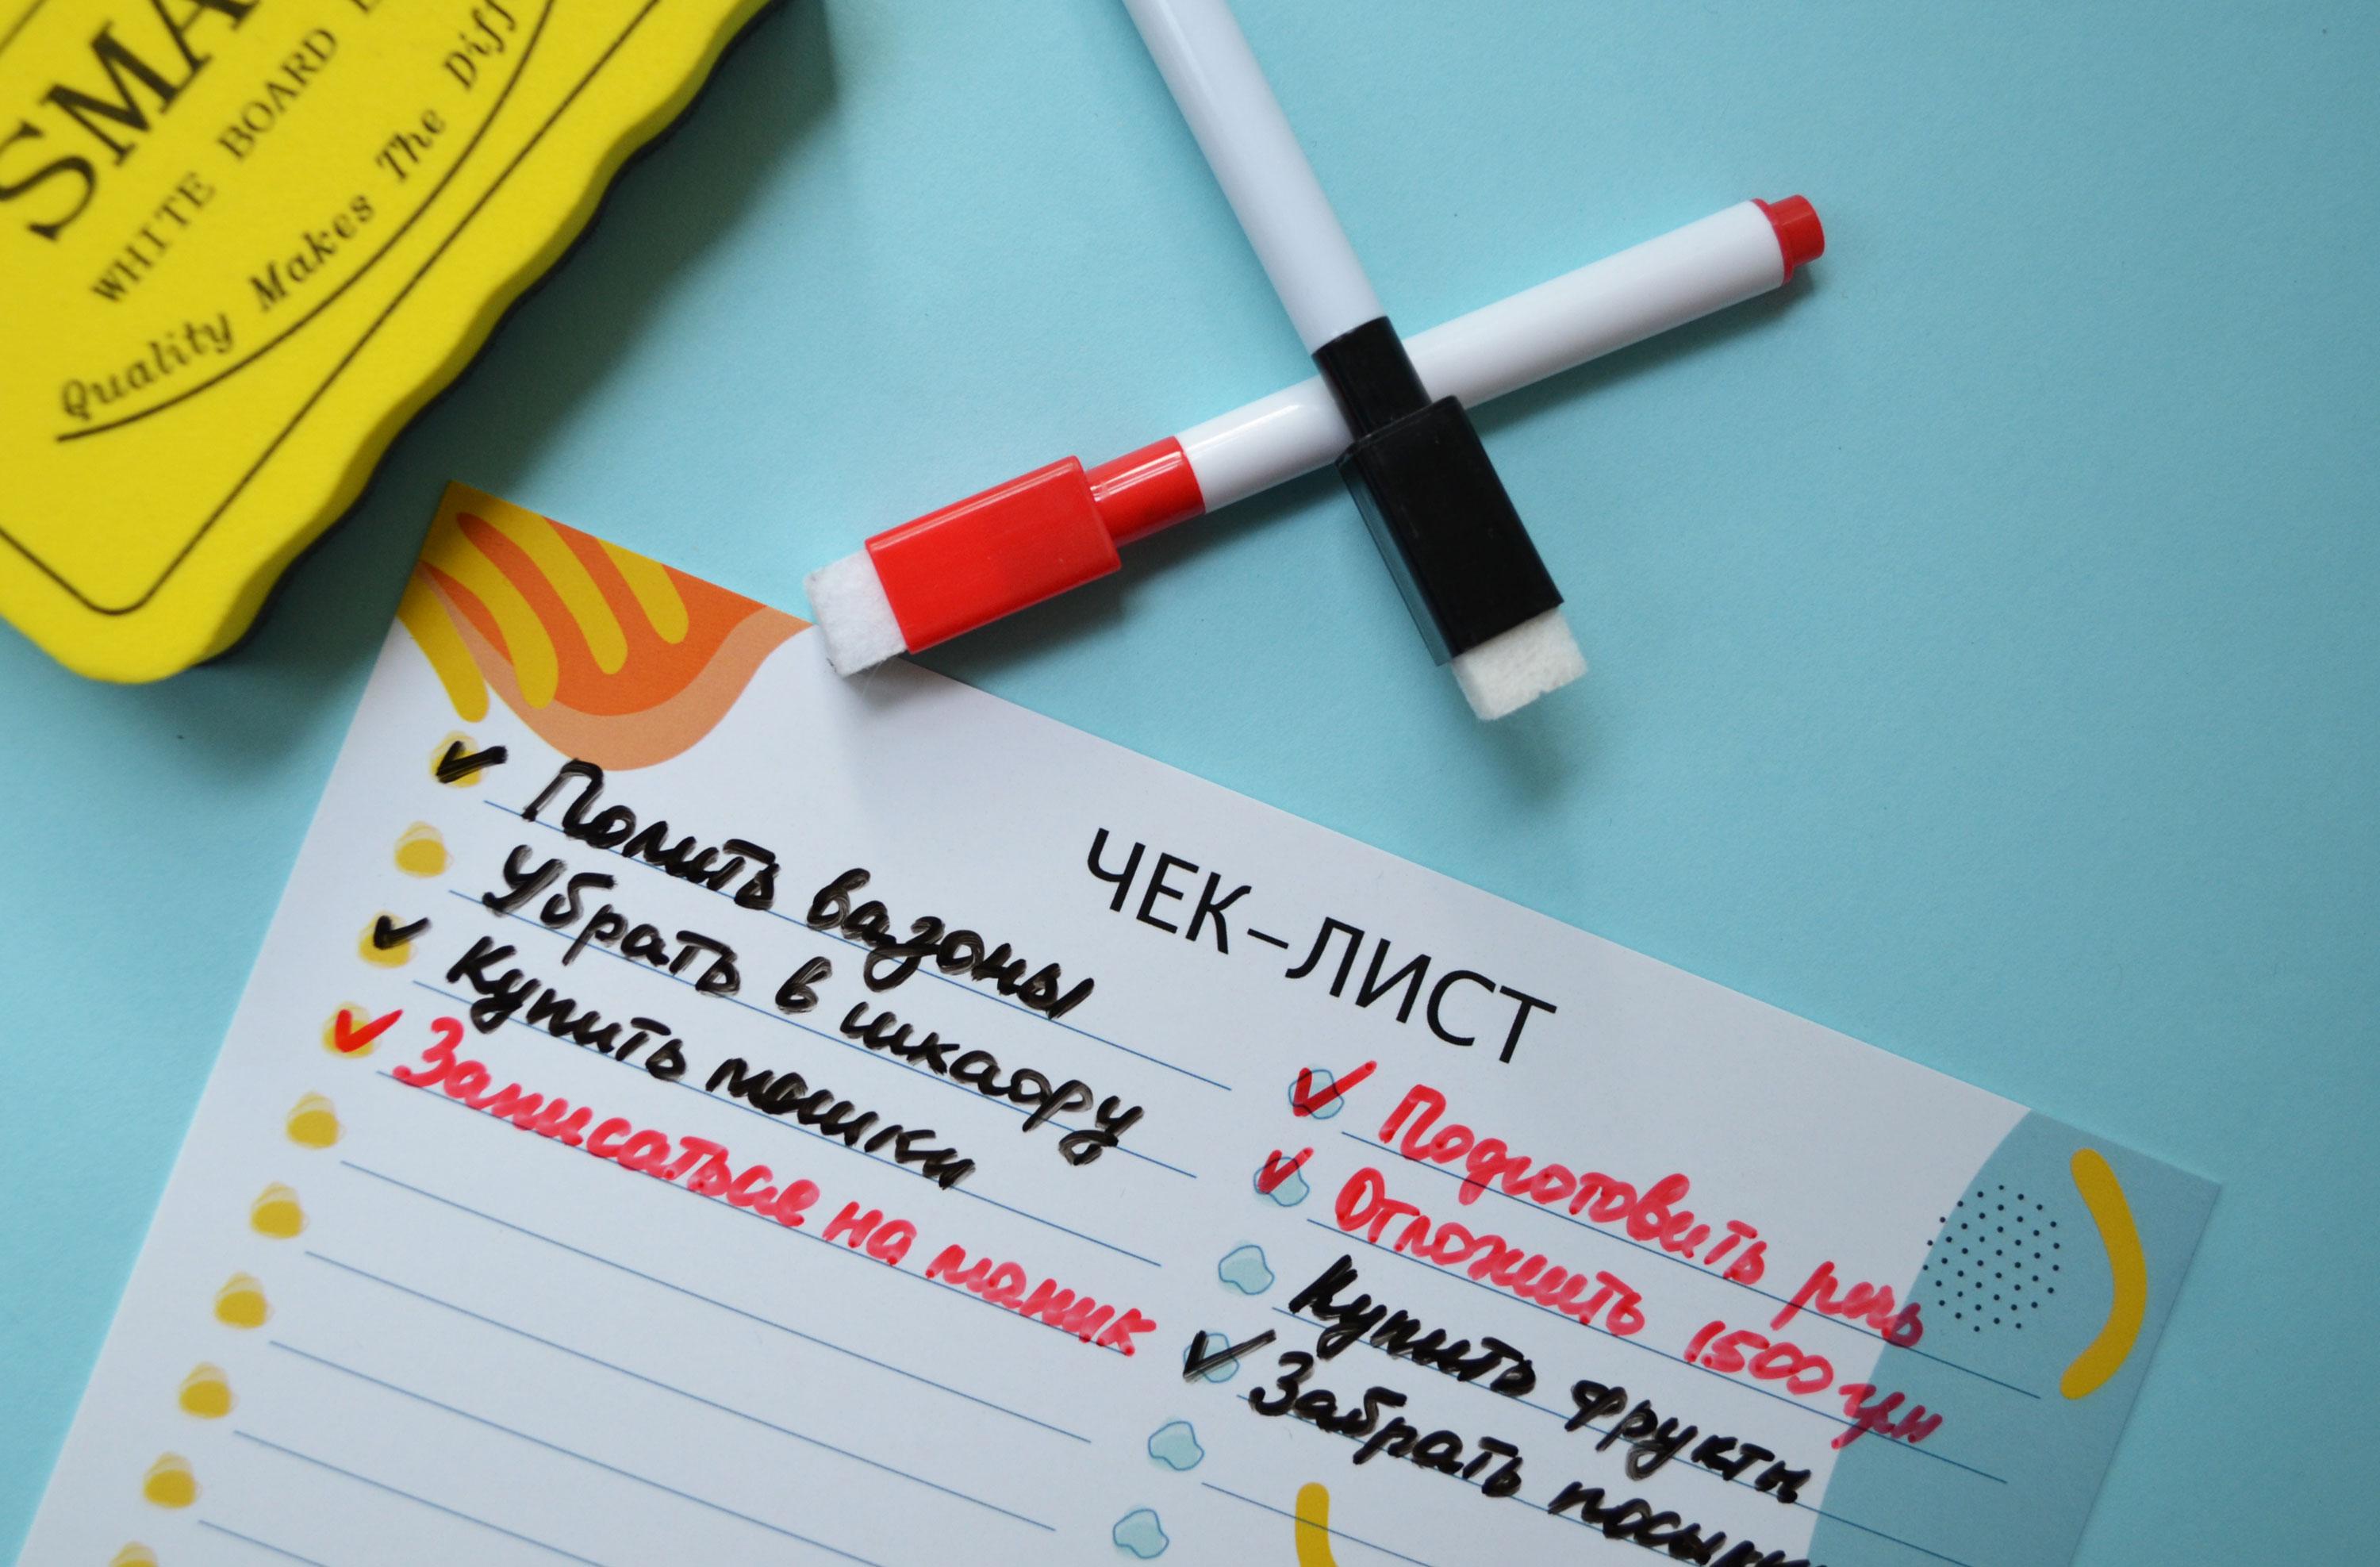 SMA
WHITE BOARD
Quality Makes The Diff
ЧЕК-ЛИСТ
Полить вазоны
Убрать в шкафу
Купить мошки
Записаться на маник
Подготовить речь
Отложить 1500 грн
Купить фрукты
Забрать посыл